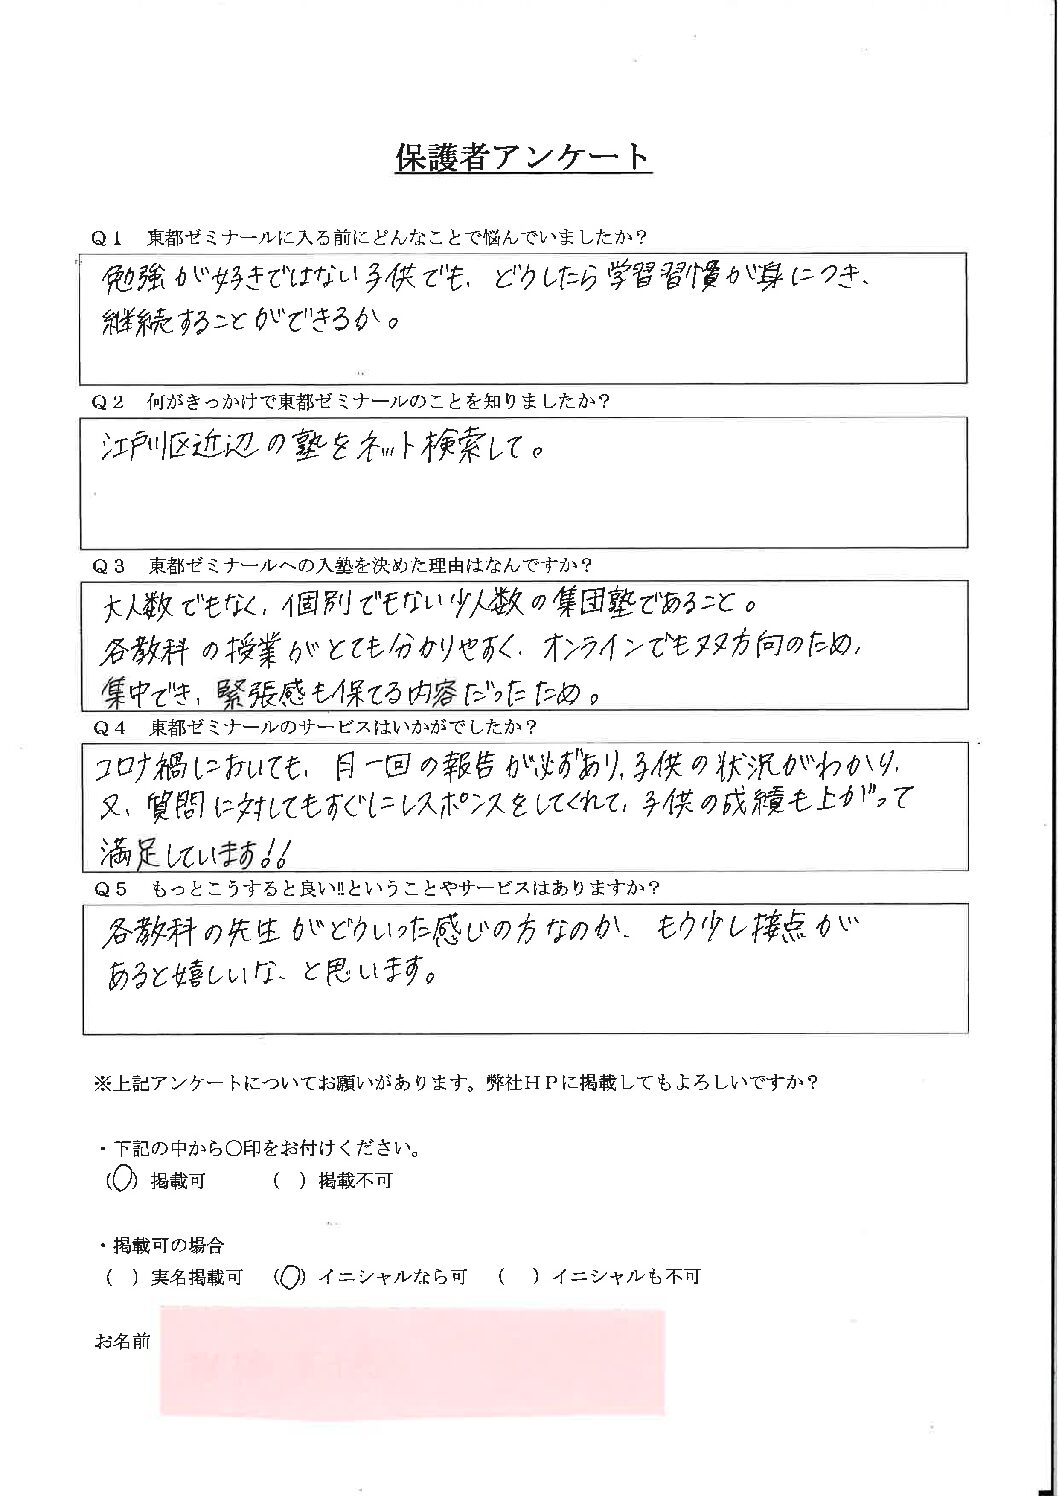 保護者アンケート
Q1 東都ゼミナールに入る前にどんなことで悩んでいましたか?
勉強が好きではない子供でも、どうしたら学習習慣が身につき、
継続することができるか。
Q2 何がきっかけで東都ゼミナールのことを知りましたか?
江戸川区近辺の塾をネット検索して。
Q3 東都ゼミナールへの入塾を決めた理由はなんですか?
大人数でもなく、個別でもない少人数の集団塾であること。
各教科の授業がとても分かりやすく、オンラインでも双方向のため、
集中でき、緊張感も保てる内容だったため。
Q4 東都ゼミナールのサービスはいかがでしたか?
コロナ禍においても、月一回の報告が必ずあり、子供の状況がわかり、
又、質問に対してもすぐにレスポンスをしてくれて、子供の成績も上がって
満足しています!!
Q5 もっとこうすると良い!!ということやサービスはありますか?
各教科の先生がどういった感じの方なのか、もう少し接点が
あると嬉しいな、と思います。
※上記アンケートについてお願いがあります。弊社HPに掲載してもよろしいですか?
・下記の中から〇印をお付けください。
(〇)掲載可 ( )掲載不可
・掲載可の場合
( )実名掲載可 (〇)イニシャルなら可 ( )イニシャルも不可
お名前